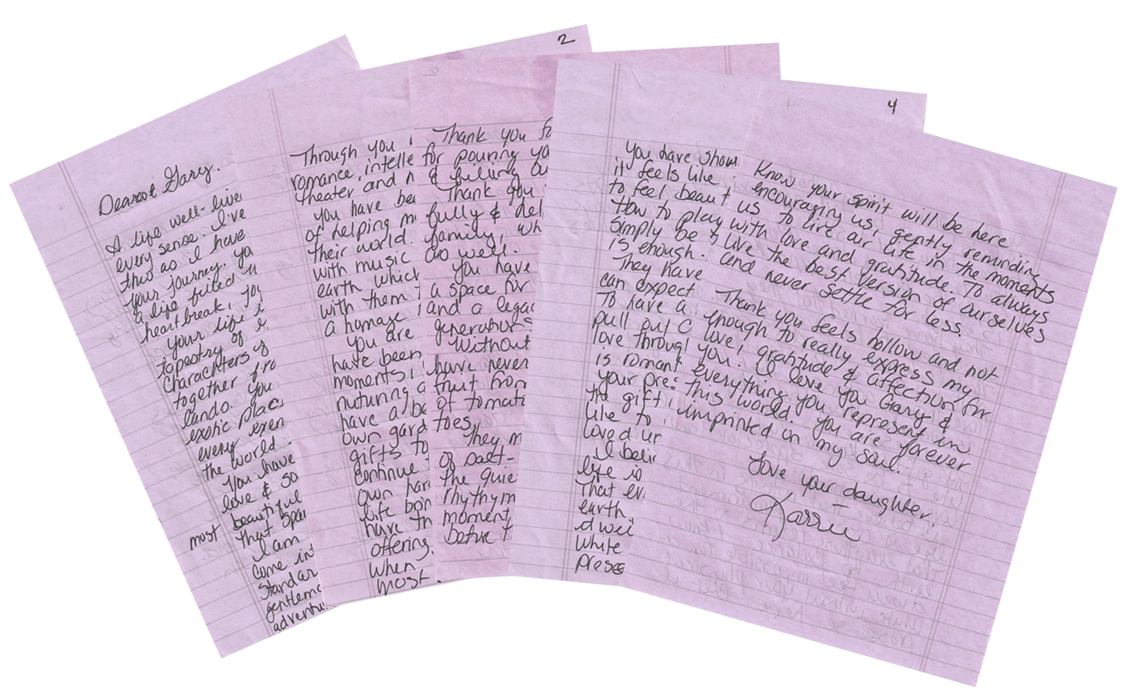 Dearest Gary,
A life well-live
every sense. I've
this as I have
your journey. you
a life filled
heartbreak, joy
your life i
tapestry of
Charachters
together fro
lands. You
exotic plac
every even
the world
You have
love & so
most beautiful
that span
I am
Come in
Standar
gentlema
adventu
2
Through you
romance, intelle
theater and
you have be
of helping m
their world.
with music
earth which
with them
a homage
you are
have been
moments,
nuturing a
have a be
own gard
gifts to
continue
own har
life bon
have th
offering.
when
most.
Thank you fo
for pouring yo
& filling ou
Thank you
fully & del
family, wh
as well.
you have
a space for
and a legac
generations
Without
have never
fruit from
of tomato
toes.
They m
of salt-
the quie
rhythym
moment
before t
You have show
it feels like
to feel beaut
How to play
simply be &
is enough.
They have
can expect
To have a
pull out c
love throug
is romant
your pres
The gift
like to
loved un
I belie
life is
that ev
earth.
dwell
white
prese
4
Know your spirit will be here
encouraging us, gently reminding
us to live our life in the moments
with love and gratitude. To always
live the best version of ourselves
and never settle for less.
Thank you feels hollow and not
enough to really express my
love, gratitude & affection for
you. I love you Gary &
everything you represent in
this world. You are forever
imprinted on my soul.
Love your daughter,
Karrie